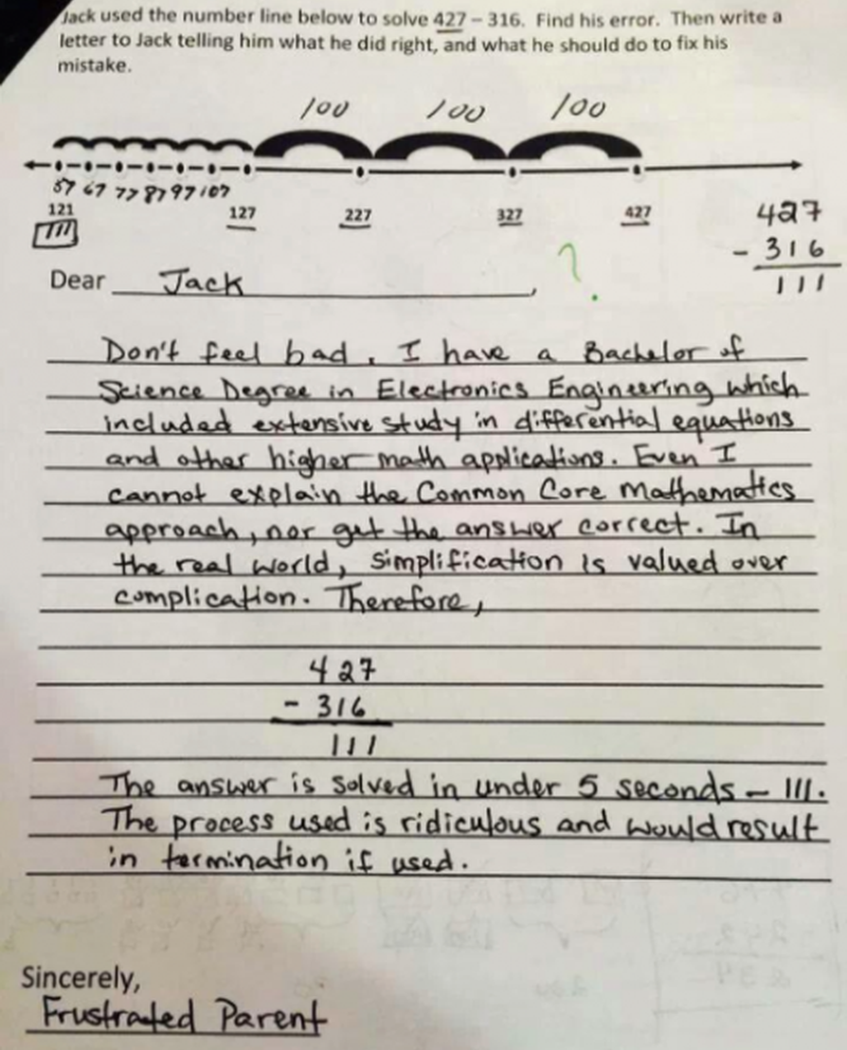 Jack used the number line below to solve 427 – 316. Find his error. Then write a
letter to Jack telling him what he did right, and what he should do to fix his
mistake.
100 100 100
57 67 77 87 97 107
121 127 227 327 427
111
427
- 316
111
?
Dear Jack,
Don't feel bad. I have a Bachelor of
Science Degree in Electronics Engineering which
included extensive study in differential equations
and other higher math applications. Even I
cannot explain the Common Core Mathematics
approach, nor get the answer correct. In
the real world, simplification is valued over
complication. Therefore,
427
- 316
111
The answer is solved in under 5 seconds – 111.
The process used is ridiculous and would result
in termination if used.
Sincerely,
Frustrated Parent